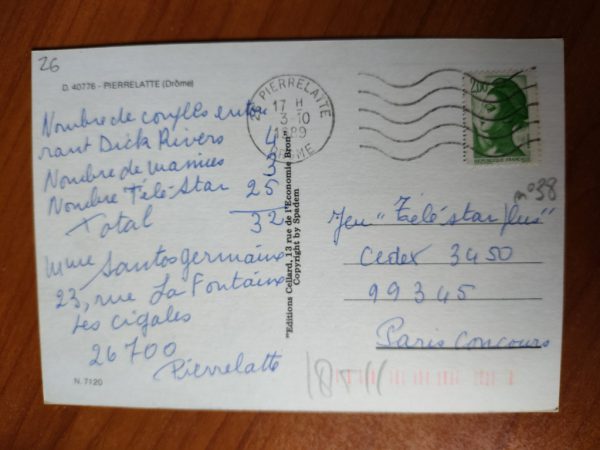 26
D. 40776 - PIERRELATTE (Drôme)
Nombre de couples entou
rant Dick Rivers 4
Nombre de mamies 3
Nombre Télé-Star 25
Total 32
Mme Santosgermaine
23, rue La Fontaine
Les Cigales
26700
Pierrelatte
N. 7120
"Editions Cellard, 13 rue de l'Economie Bron"
Copyright by Spadem
26 PIERRELATTE
17 H
3-10
1989
DROME
2,00
REPUBLIQUE FRANÇAISE
n°38
Jeu "Télé star plus"
Cedex 3450
99345
Paris Concours